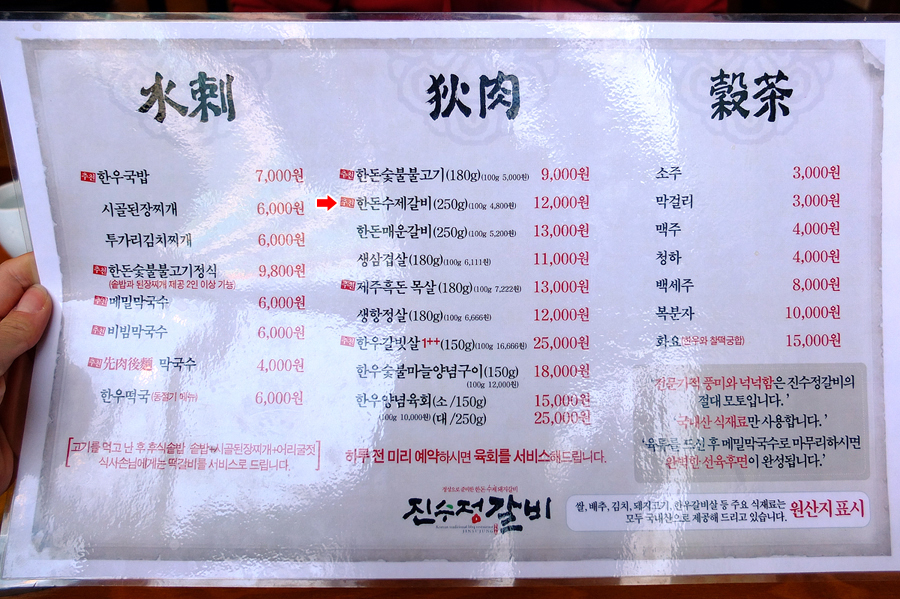 水刺
추천 한우국밥 7,000원
시골된장찌개 6,000원
투가리김치찌개 6,000원
추천 한돈숯불불고기정식 9,800원
(솥밥과 된장찌개 제공 2인 이상 가능)
추천 메밀막국수 6,000원
추천 비빔막국수 6,000원
추천 先肉後麵 막국수 4,000원
한우떡국(동절기 메뉴) 6,000원
[고기를 먹고 난 후 후식솥밥 솥밥+시골된장찌개+어리굴젓
식사손님에게는 떡갈비를 서비스로 드립니다.]
狄肉
추천 한돈숯불불고기(180g)(100g 5,000원) 9,000원
추천 한돈수제갈비(250g)(100g 4,800원) 12,000원
한돈매운갈비(250g)(100g 5,200원) 13,000원
생삼겹살(180g)(100g 6,111원) 11,000원
추천 제주흑돈 목살(180g)(100g 7,222원) 13,000원
생항정살(180g)(100g 6,666원) 12,000원
추천 한우갈빗살 1++(150g)(100g 16,666원) 25,000원
한우숯불마늘양념구이(150g) 18,000원
(100g 12,000원)
한우양념육회(소/150g) 15,000원
(100g 10,000원) (대/250g) 25,000원
하루 전 미리 예약하시면 육회를 서비스해드립니다.
정성으로 준비한 한돈 수제 돼지갈비
진수정갈비
穀茶
소주 3,000원
막걸리 3,000원
맥주 4,000원
청하 4,000원
백세주 8,000원
복분자 10,000원
화요(한우와 찰떡궁합) 15,000원
'전문가적 풍미와 넉넉함은 진수정갈비의
절대 모토입니다.'
'국내산 식재료만 사용합니다.'
'육톡를 드신 후 메밀막국수로 마무리하시면
완벽한 선육후면이 완성됩니다.'
쌀, 배추, 김치, 돼지고기, 한우갈비살 등 주요 식재료는
모두 국내산으로 제공해 드리고 있습니다. 원산지 표시